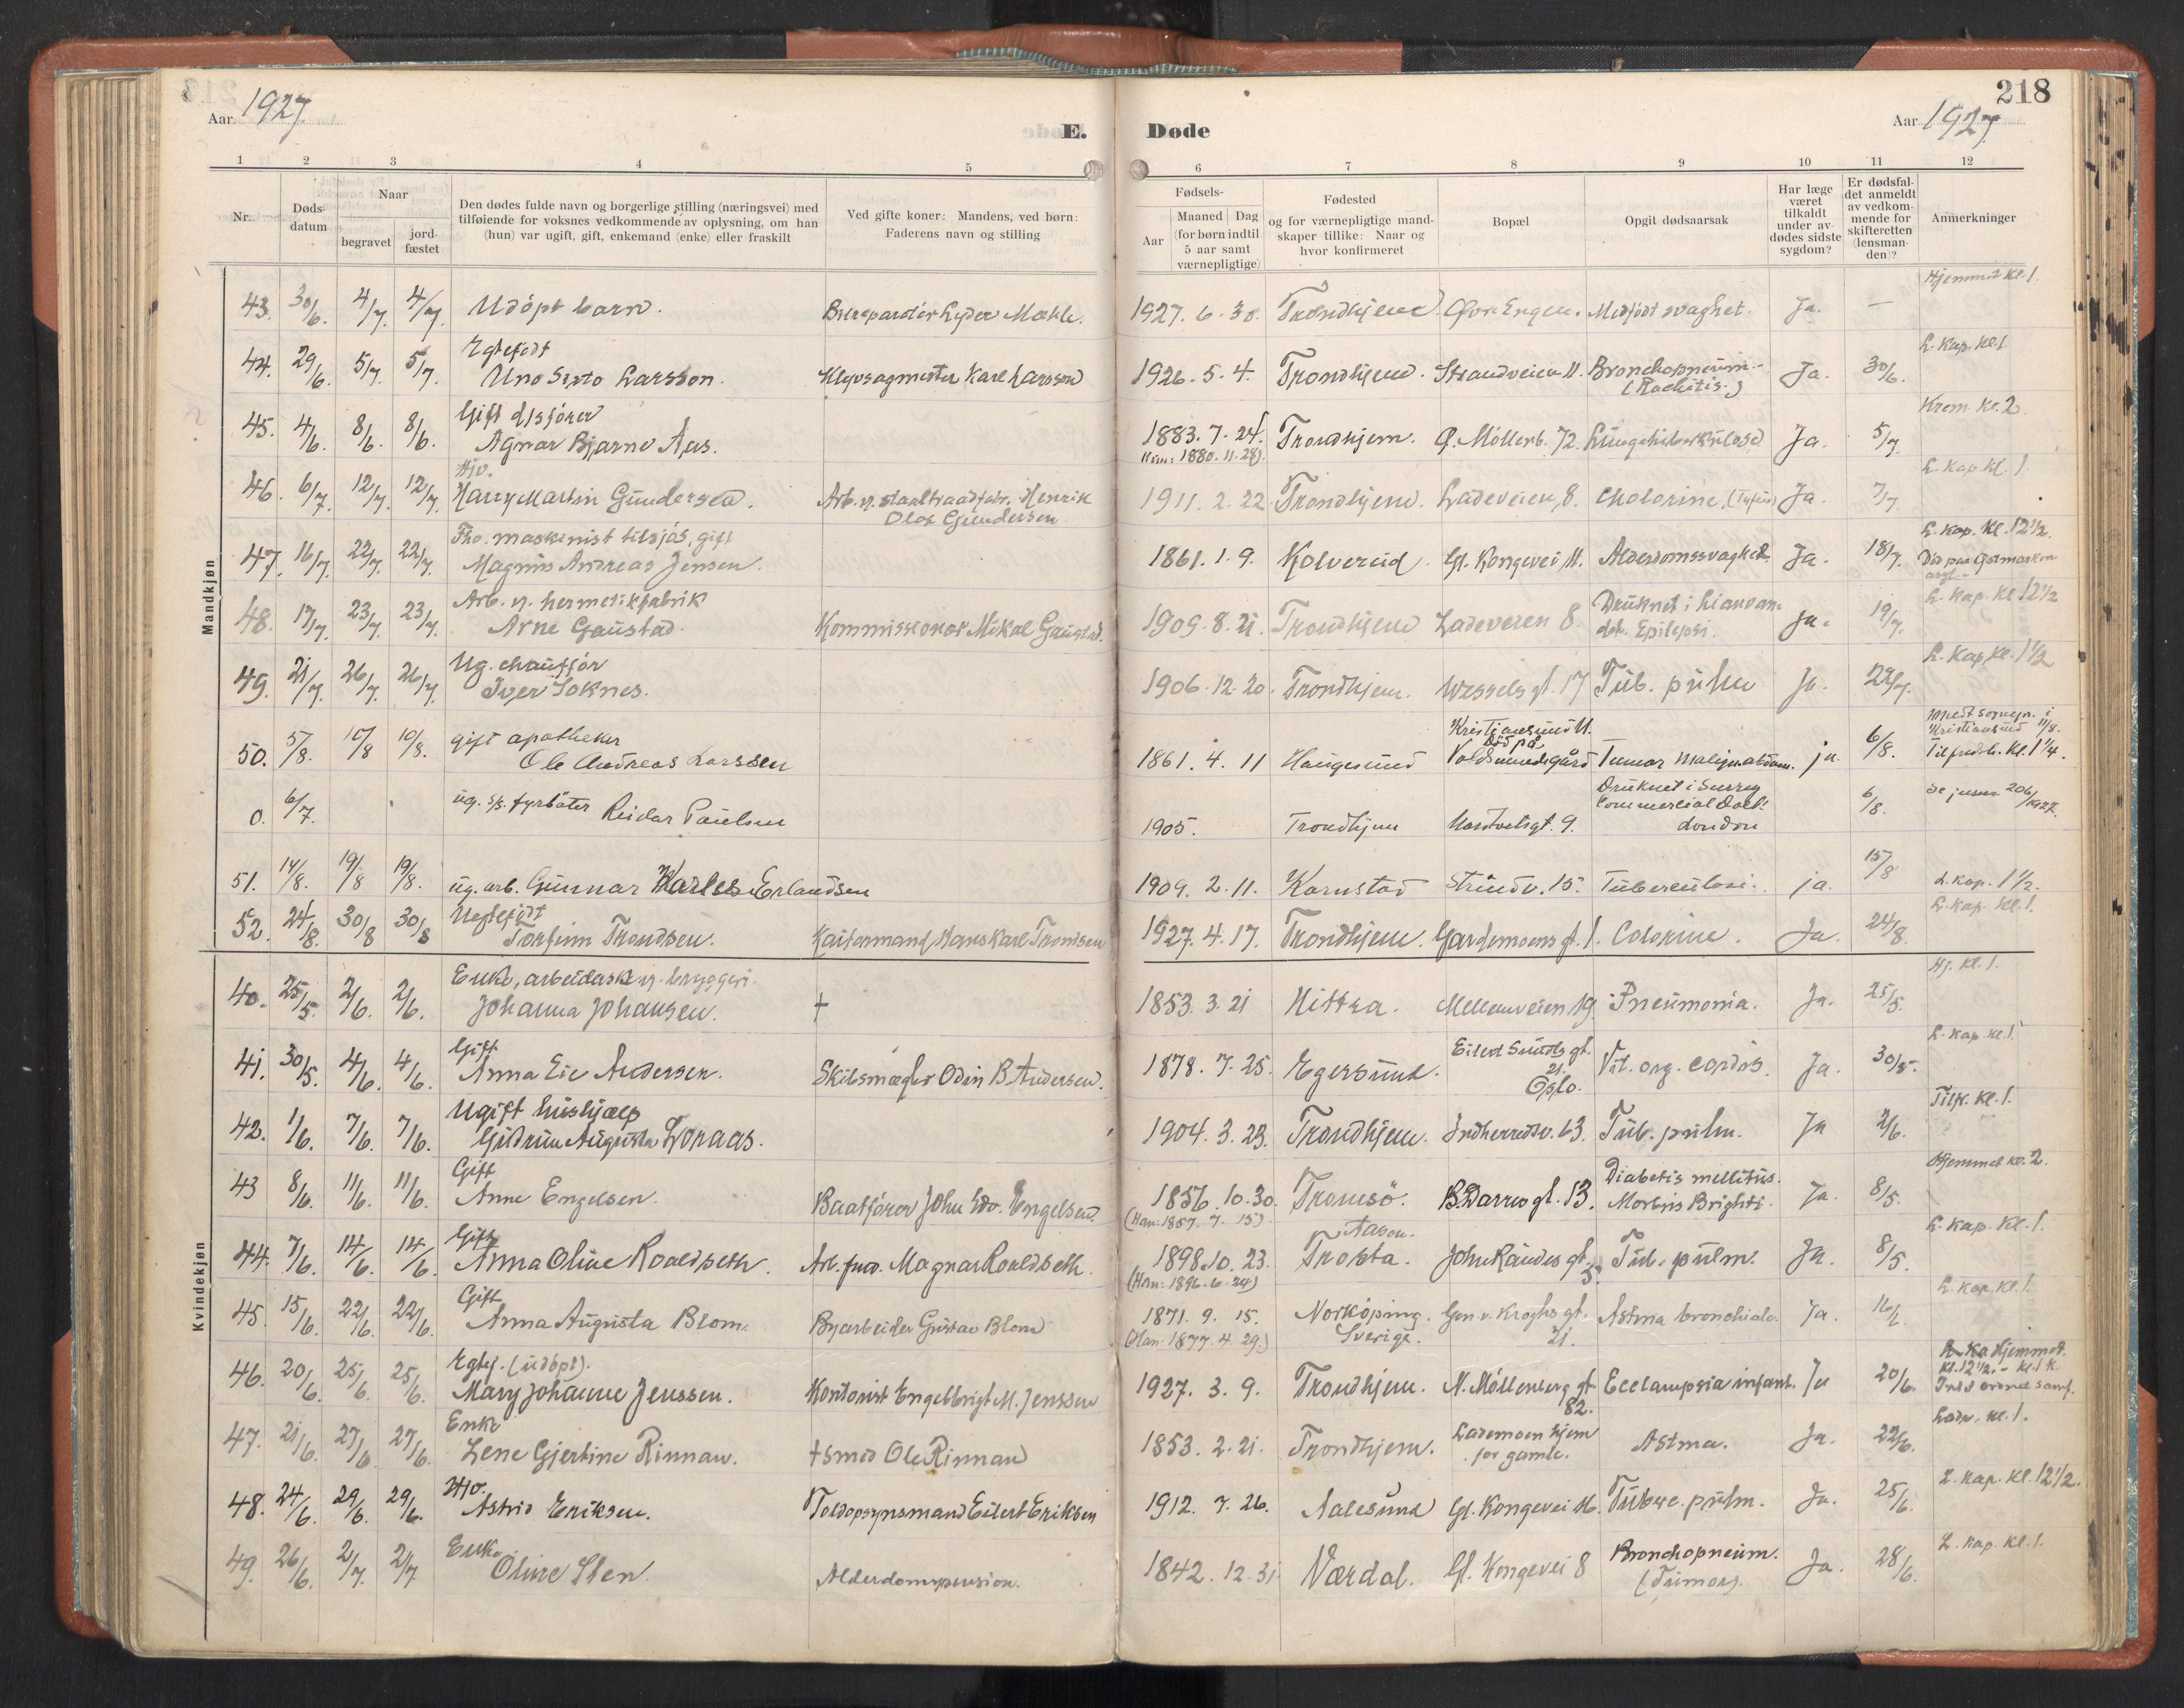 218
Aar 1927
E. Døde
Aar 1927
1 2 3 4 5 6 7 8 9 10 11 12
Nr.
Døds-
datum
Naar
begravet
jord-
fæstet
Den dødes fulde navn og borgerlige stilling (næringsvei) med
tilføiende for voksnes vedkommende av oplysning, om han
(hun) var ugift, gift, enkemand (enke) eller fraskilt
Ved gifte koner: Mandens, ved børn:
Faderens navn og stilling
Fødsels-
Aar
Maaned Dag
(for børn indtil
5 aar samt
værnepligtige)
Fødested
og for værnepligtige mand-
skaper tillike: Naar og
hvor konfirmeret
Bopæl
Opgit dødsaarsak
Har læge
været
tilkaldt
under av-
dødes sidste
sygdom?
Er dødsfal-
det anmeldt
av vedkom-
mende for
skifteretten
(lensman-
den)?
Anmerkninger
Mandkjøn
43. 30/6. 4/7. 4/7. Udöpt barn. Lyder Mæhle. 1927. 6. 30. Trondhjem. Medfödt svaghet. Ja. — Hjemmet kl. 1.
44. 29/6. 5/7. 5/7. Egtefødt
Uno Sixto Larsson. Karl Larsson 1926. 5. 4. Trondhjem. Strandveien 11. Bronchopneum.
(Rachitis.) Ja. 30/6. L. Kap. kl. 1.
45. 4/6. 8/6. 8/6. Gift
Agnar Bjarne Aas. 1883. 7. 24. Trondhjem. Ö. Möllenb. 72 Lungetuberkulose Ja. 5/7. Krem. kl. 2.
1880. 11. 28).
46. 6/7. 12/7. 12/7. Hjv.
Harry Martin Gundersen. Arb. v. staaltraadfabr. Henrik
Olaf Gundersen 1911. 2. 22. Trondhjem. Ladeveien, 8. Cholorine, (Tyfus) Ja. 7/7. L. Kap. kl. 1
47. 16/7. 22/7. 22/7. Fho. maskinist tilsjøs, gift
Magnus Andreas Jensen. 1861. 1. 9. Kolvereid. Gl. Kongevei 11. Alderdomssvaghed. Ja. 18/7. L. kap. kl. 12 1/2.
Död paa Östmarken
asyl.
48. 17/7. 23/7. 23/7. Arb. v. hermetikfabrik
Arne Gaustad. Kommissionær Mikal Gaustad. 1909. 8. 21. Trondhjem Ladeveien 8. Druknet i
Epilepsi. Ja. 19/7. L. kap. kl. 12 1/2
49. 21/7. 26/7. 26/7. Ug. chauffør
Iver Soknes. 1906. 12. 20. Trondhjem. Wessels gt. 17 Tub. pulm Ja. 22/7. L. Kap. kl. 1 1/2
50. 5/8. 10/8 10/8. gift apotheker
Ole Andreas Larssen 1861. 4. 11 Haugesund Kristiansund N.
Död på
Voldsundsgård Tumor malign abdom. ja. 6/8. Kristiansund 11/8.
Tilfredsh. kl. 1 1/4.
0. 6/7. ug. s/s. fyrböter Reidar Paulsen 1905. Trondhjem gt. 9. Druknet i Surrey
Commercial Dock
London 6/8. 206/1927.
51. 14/8. 19/8 19/8. ug. arb. Gunnar Karles Erlandsen 1909. 2. 11. Karnstad Strindv. 15. Tuberculosi. ja. 15/8 L. kap. 1 1/2.
52. 24/8. 30/8 30/8 Uegtefødt
Torfinn Trondsen. Kaiformand Hans Karl Trondsen 1927. 4. 17. Trondhjem. Gardemoens gt. 1. Colorine. Ja. 24/8. L. Kap. kl. 1.
Kvindekjøn
40. 25/5. 2/6. 2/6. Enke, arbeiderske v. bryggeri.
Johanna Johansen. + 1853. 3. 21 Hittra. Mellemveien 19. Pneumonia. Ja. 25/5. Hj. kl. 1.
41. 30/5. 4/6. 4/6. Gift
Anna Eie Andersen. Skibsmægler Odin B. Andersen. 1878. 7. 25. Egersund. Eilert Sundts gt.
21.
Oslo. Vit. org. cordis. Ja. 30/5. L. kap. kl. 1.
42. 1/6. 7/6. 7/6. Ugift hushjælp
Gudrun Augusta Loraas. 1904. 3. 23. Trondhjem. Indherredsv. 63. Tub. pulm. Ja 2/6. Tilfr. kl. 1.
43 8/6. 11/6. 11/6. Gift
Anne Engelsen. Baatfører John Edv. Engelsen. 1856. 10. 30. Tromsö. B. Darres gt. 13. Diabetis mellitus.
Morbus Brighti. Ja. 8/5. Hjemmet kl. 2.
(Han: 1857. 7. 15).
44. 7/6. 14/6. 14/6. Gift
Anna Oline Roaldseth. Magnar Roaldseth 1898. 10. 23. Aasen.
Frosta. John Raudes gt.
5. Tub. pulm. Ja. 8/5. L. kap. kl. 1.
(Han: 1896. 6. 24)
45. 15/6. 22/6. 22/6. Gift
Anna Augusta Blom. Byarbeider Gustav Blom 1871. 9. 15. Norköping.
Sverige. Gen. v. Kroghs gt.
21. Astma bronchiale. Ja. 16/6. L. kap. kl. 1.
(Han: 1877. 4. 29.)
46. 20/6. 25/6. 25/6. Egtf. (udöpt).
Mary Johanne Jenssen. Kontorist Engelbrigt M. Jenssen 1927. 3. 9. Trondhjem. N. Möllenberg gt.
82. Eclampsia infant. Ja 20/6. Hjemmet.
kl. 12 1/2. - kl. 1 K.
47. 21/6. 27/6. 27/6. Enke
Lene Gjertine Rinnan. + smed Ole Rinnan 1853. 2. 21. Trondhjem. Lademoen hjem
for gamle. Astma. Ja. 22/6. Ladm. kl. 1.
48. 24/6. 29/6. 29/6. Hjv.
Astrid Eriksen. Toldopsynsmand Eilert Eriksen 1912. 7. 26. Aalesund Gl. Kongevei 16. Tuberc. pulm. Ja. 25/6. L. kap. kl. 12 1/2.
49. 26/6. 2/7. 2/7. Enke
Oline Sten. Alderdomspension. 1842. 12. 31 Værdal. Gl. Kongevei 8 Bronchopneum.
(Tumor). Ja. 28/6. L. kap. kl. 1.